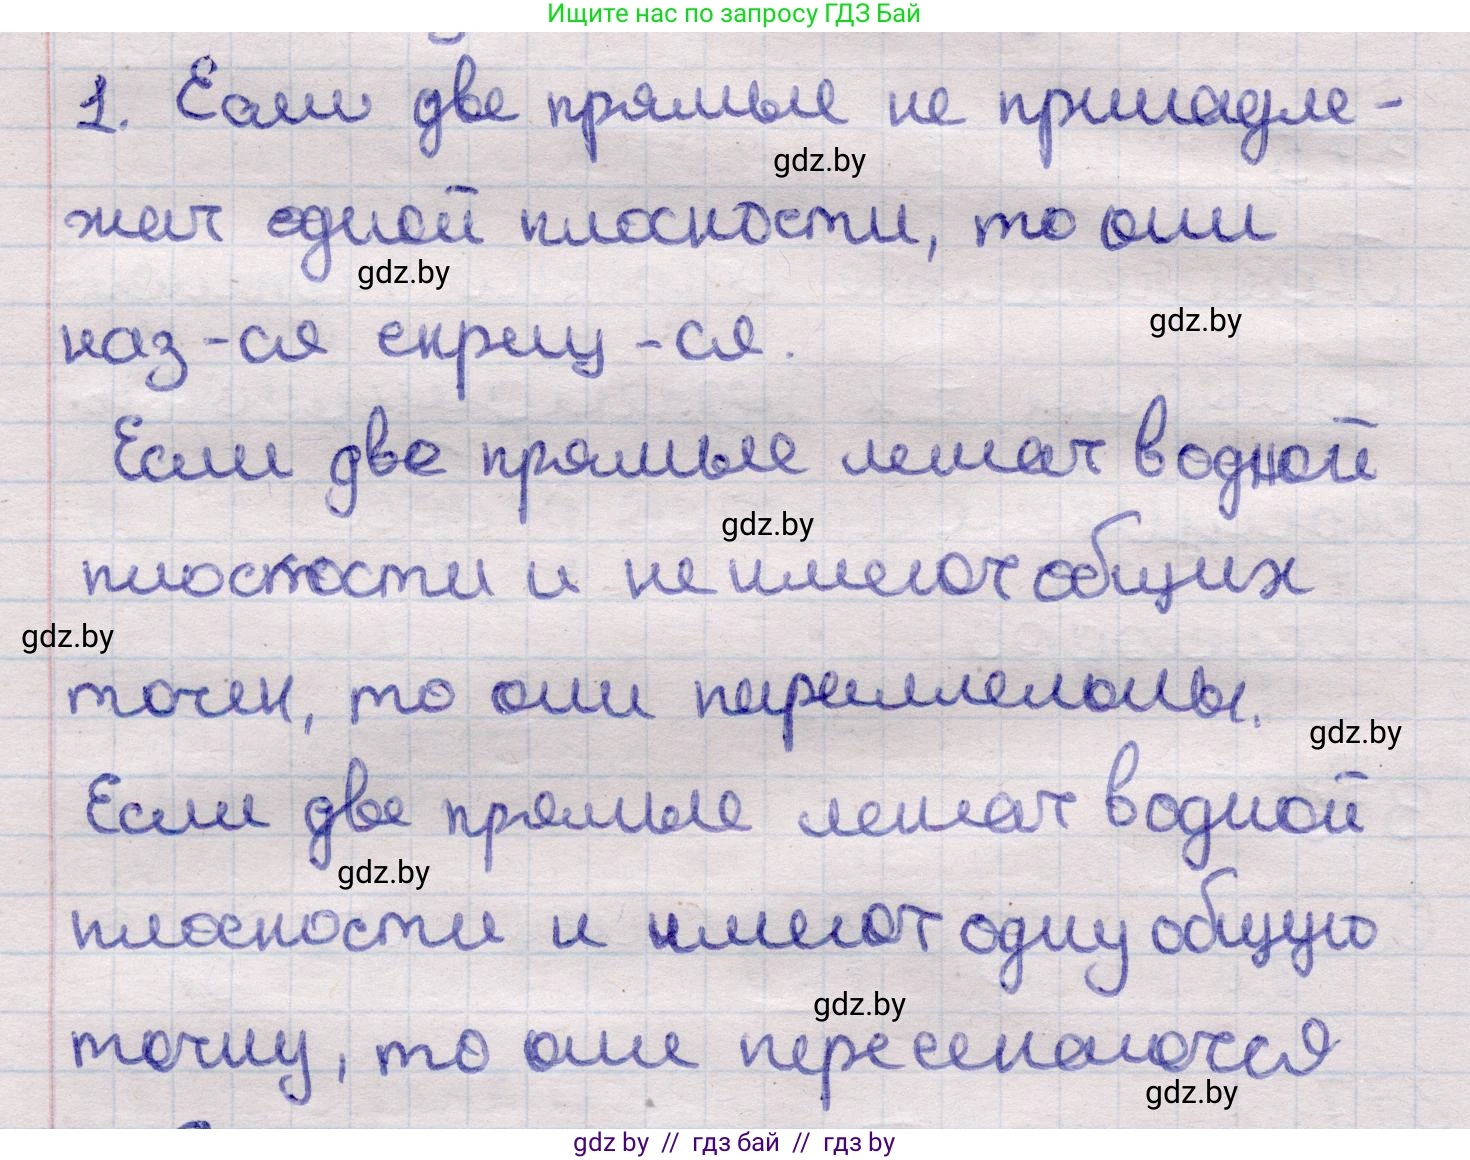 Ищите нас по запросу ГДЗ Бай
1. Если две прямые не принадле-
gdz.by
жат одной плоскости, то они
gdz.by
gdz.by
наз-ся скрещ-ся.
Если две прямые лежат в одной
gdz.by
плоскости и не имеют общих
gdz.by
точек, то они параллельны.
gdz.by
Если две прямые лежат в одной
gdz.by
плоскости и имеют одну общую
gdz.by
точку, то они пересекаются
gdz.by
gdz by // гдз бай // гдз by